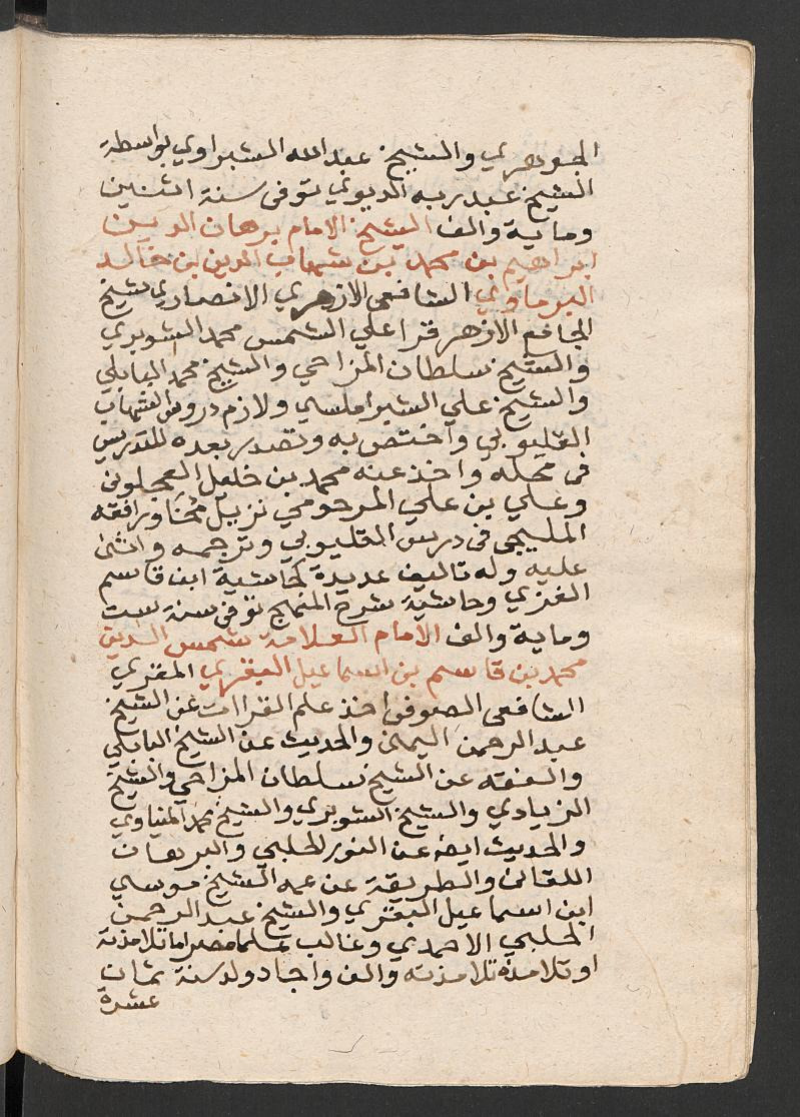 الجوهري والشيخ عبد الله الشبراوي بواسطة
الشيخ عبد ربه الديوي توفي سنة اثنين
وماية والف الشيخ الامام برهان الدين
ابراهيم بن محمد بن شهاب الدين بن خالد
البرماوي الشافعي الازهري الانصاري شيخ
الجامع الازهر قرا علي الشمس محمد الشوبري
والشيخ سلطان المزاحي والشيخ محمد البابلي
والشيخ علي الشبراملسي ولازم دروس الشهاب
القليوبي واختص به وتصدر بعده للتدريس
في محله واخذ عنه محمد بن خليل العجلوني
وعلي بن علي المرحومي نزيل مخا ورافقه
المليجي في دروس القليوبي وترجمه واثنى
عليه وله تاليف عديدة كحاشية ابن قاسم
الغزي وحاشية شرح المنهج توفي سنة ست
وماية والف الامام العلامة شمس الدين
محمد بن قاسم بن اسماعيل البقري المقري
الشافعي الصوفي اخذ علم القراات عن الشيخ
عبد الرحمن اليمني والحديث عن الشيخ البابلي
والفقه عن الشيخ سلطان المزاحي والشيخ
الزيادي والشيخ الشوبري والشيخ محمد المنياوي
والحديث ايضا عن النور الحلبي والبرهان
اللقاني والطريقة عن عمه الشيخ موسي
ابن اسماعيل البقري والشيخ عبد الرحمن
الحلبي الاحمدي وغالب علما مصر اما تلامذته
او تلامذة تلامذته والف واجاد ولد سنة ثمان
عشرة